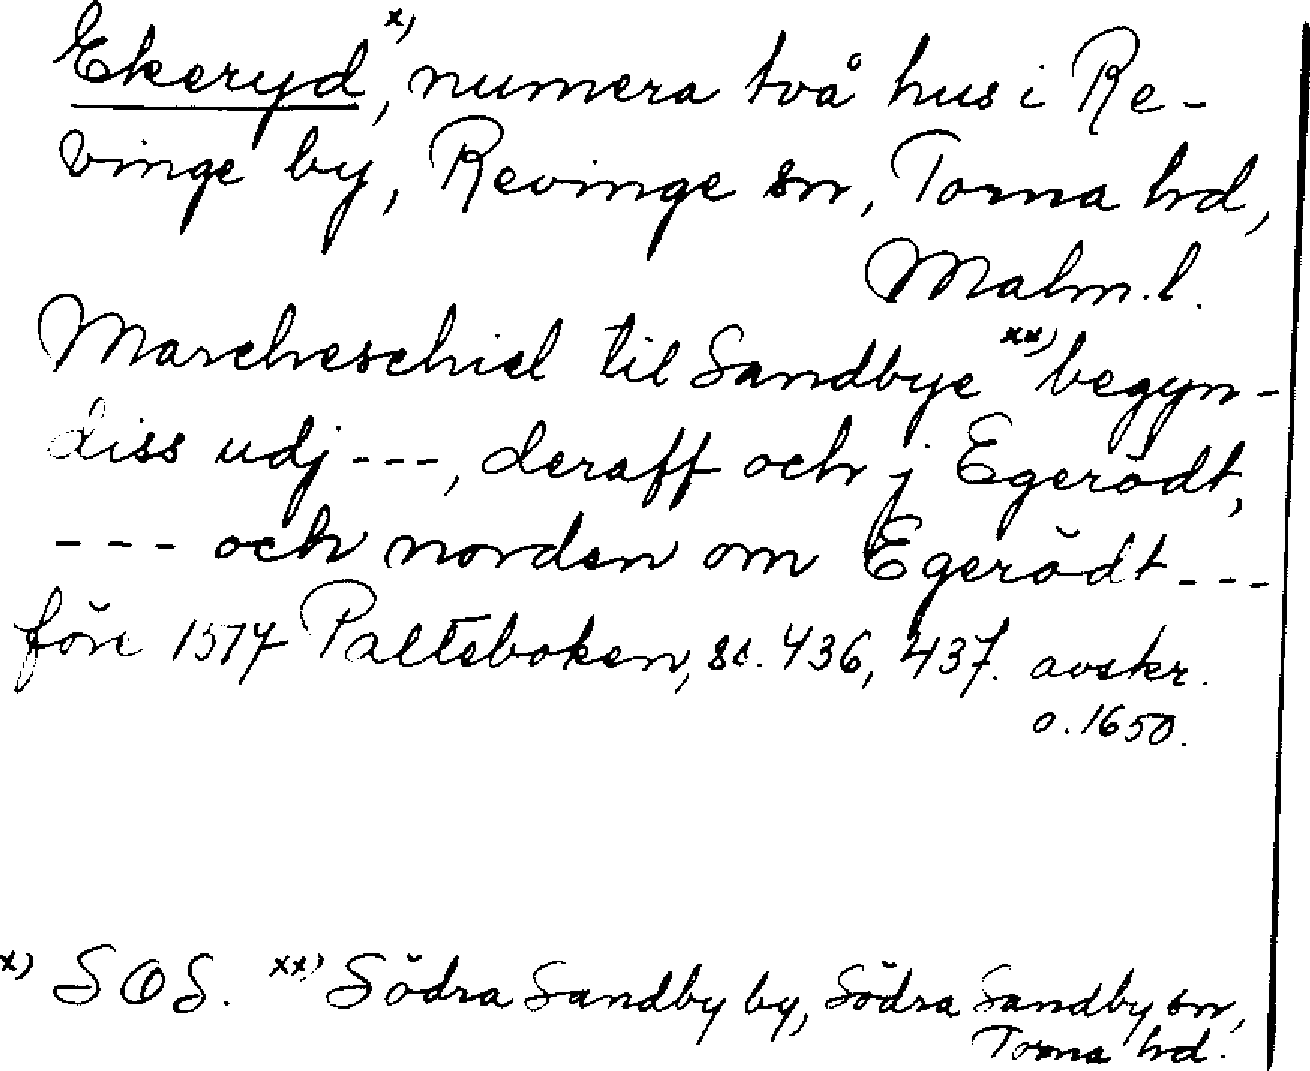 Ekeryd,ˣ⁾ numera två hus i Re-
vinge by, Revinge sn, Torna hd,
Malm.l.
Marcheschiel til Sandbyeˣˣ⁾ begyn-
diss udj ---, deraff och j Egerödt,
--- och norden om Egerödt ---
före 1574 Paltsboken, s. 436, 437. avskr.
o. 1650.
x) SOS. xx) Södra Sandby by, Södra Sandby sn,
Torna hd.